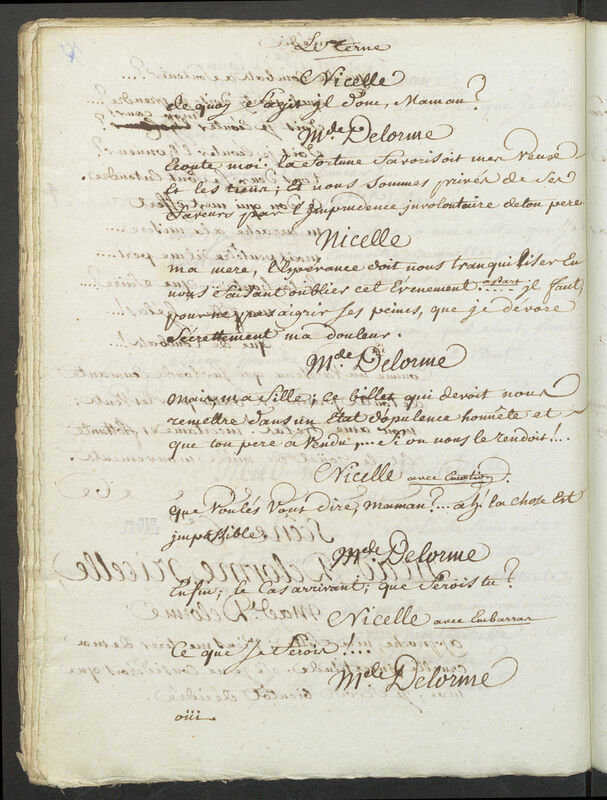 Le Terne
Nicelle
de quoy s'agit-yl donc, Maman?
Mde Delorme
Ecoute moi: la fortune favorisoit mes veux
Et les tiens; Et nous sommes privés de ses
faveurs par l'Imprudence jnvolontaire de ton pere
Nicelle
ma mere, l'Esperance doit nous tranquilliser En
nous faisant oublier cet Evenement ..... apart jl faut,
pour ne pas aigrir ses peines, que je dévore
Secrettement ma douleur.
Mde Delorme
mais, ma fille; ce billet qui devoit nous
remettre dans un Etat d'opulence honnête et
que ton pere a Vendu,... Si on nous le rendoit!...
Nicelle avec Emotion.
que voulés vous dire, maman?... ah! la chose Est
jmpossible.
Mde Delorme
Enfin; le Cas arrivant; que ferois tu?
Nicelle avec Embarras
Ce que je ferois!...
Mde Delorme
oüi